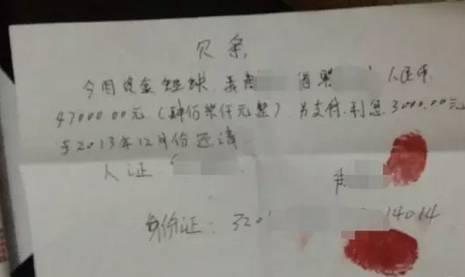 欠条
今因资金短缺 人民币
47000.00元(肆佰柒仟元整)另支付利息3000.00元
于2013年12月份还请
人证
身份证: 320 14014